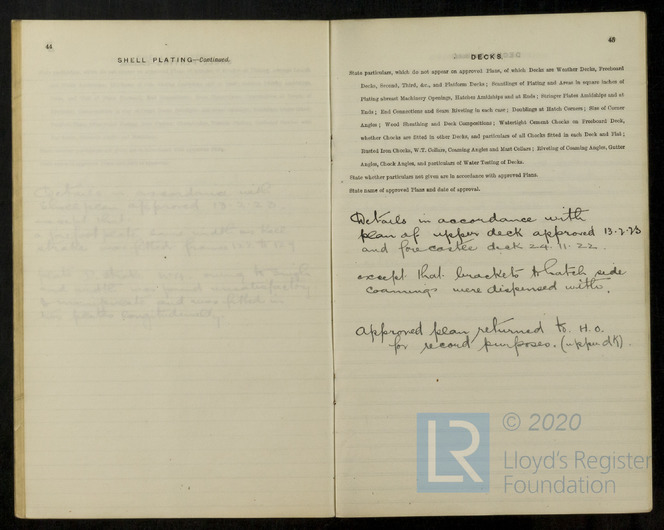 44
SHELL PLATING—Continued.
48
DECKS.
State particulars, which do not appear on approved Plans, of which Decks are Weather Decks, Freeboard
Decks, Second, Third, &c., and Platform Decks; Scantlings of Plating and Areas in square inches of
Plating abreast Machinery Openings, Hatches Amidships and at Ends; Stringer Plates Amidships and at
Ends; End Connections and Seam Riveting in each case; Doublings at Hatch Corners; Size of Corner
Angles; Wood Sheathing and Deck Compositions; Watertight Cement Chocks on Freeboard Deck,
whether Chocks are fitted in other Decks, and particulars of all Chocks fitted in each Deck and Flat;
Rusted Iron Chocks, W.T. Collars, Coaming Angles and Mast Collars; Riveting of Coaming Angles, Gutter
Angles, Chock Angles, and particulars of Water Testing of Decks.
State whether particulars not given are in accordance with approved Plans.
State name of approved Plans and date of approval.
Details in accordance with
plan of upper deck approved 13-2-23
and forecastle deck 24.11.22.
except that brackets to hatch side
coamings were dispensed with.
Approved plan returned to H.O.
for record purposes. (upper dk).
LR
© 2020
Lloyd's Register
Foundation